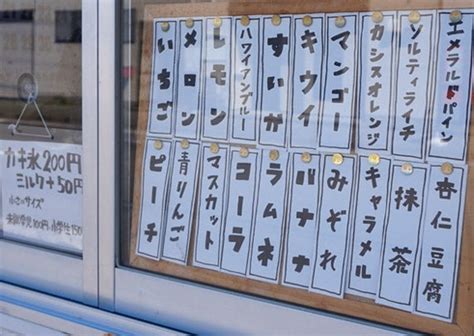 エメラルドパイン
ソルティライチ
カシスオレンジ
マンゴー
キウイ
すいか
ハワイアンブルー
レモン
メロン
いちご
杏仁豆腐
抹茶
キャラメル
みぞれ
バナナ
ラムネ
コーラ
マスカット
青りんご
ピーチ
カキ氷200円
ミルク+50円
小さいサイズ
未就学児100円 小学生150